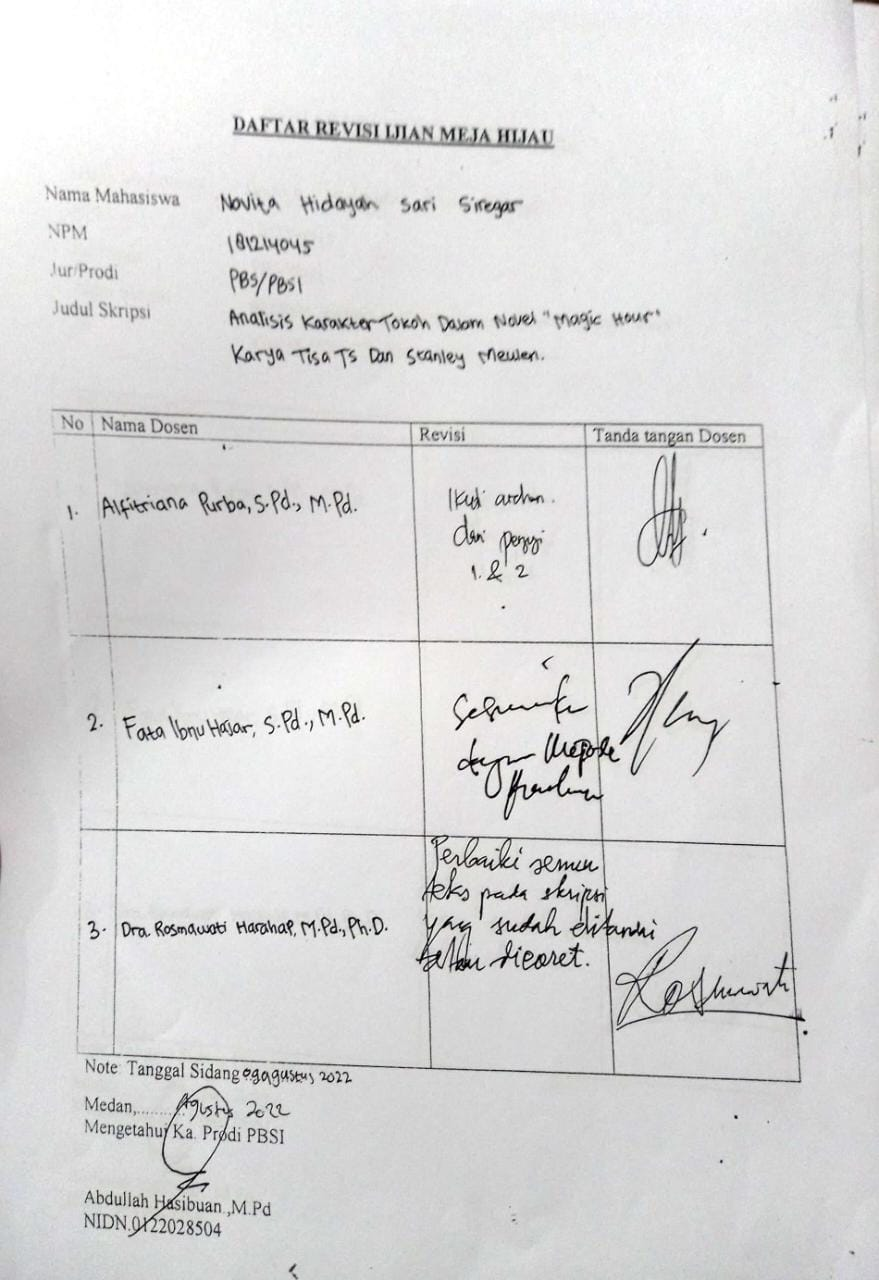 DAFTAR REVISI UJIAN MEJA HIJAU
Nama Mahasiswa Novita Hidayah Sari Siregar
NPM 181214045
Jur/Prodi PBS/PBSI
Judul Skripsi Analisis Karakter Tokoh Dalam Novel "Magic Hour"
Karya Tisa TS Dan Stanley Meulen.
No Nama Dosen Revisi Tanda tangan Dosen
1. Alfitriana Purba, S.Pd., M.Pd. Ikuti arahan
dari penguji
1 & 2
2. Fata Ibnu Hajar, S.Pd., M.Pd. Sesuaikan
dengan Metode
3. Dra. Rosmawati Harahap, M.Pd., Ph.D. Perbaiki semua
teks pada skripsi
yang sudah ditandai
dicoret.
Note: Tanggal Sidang 09 agustus 2022
Medan,......... Agustus 2022
Mengetahui Ka. Prodi PBSI
Abdullah Hasibuan.,M.Pd
NIDN.0122028504